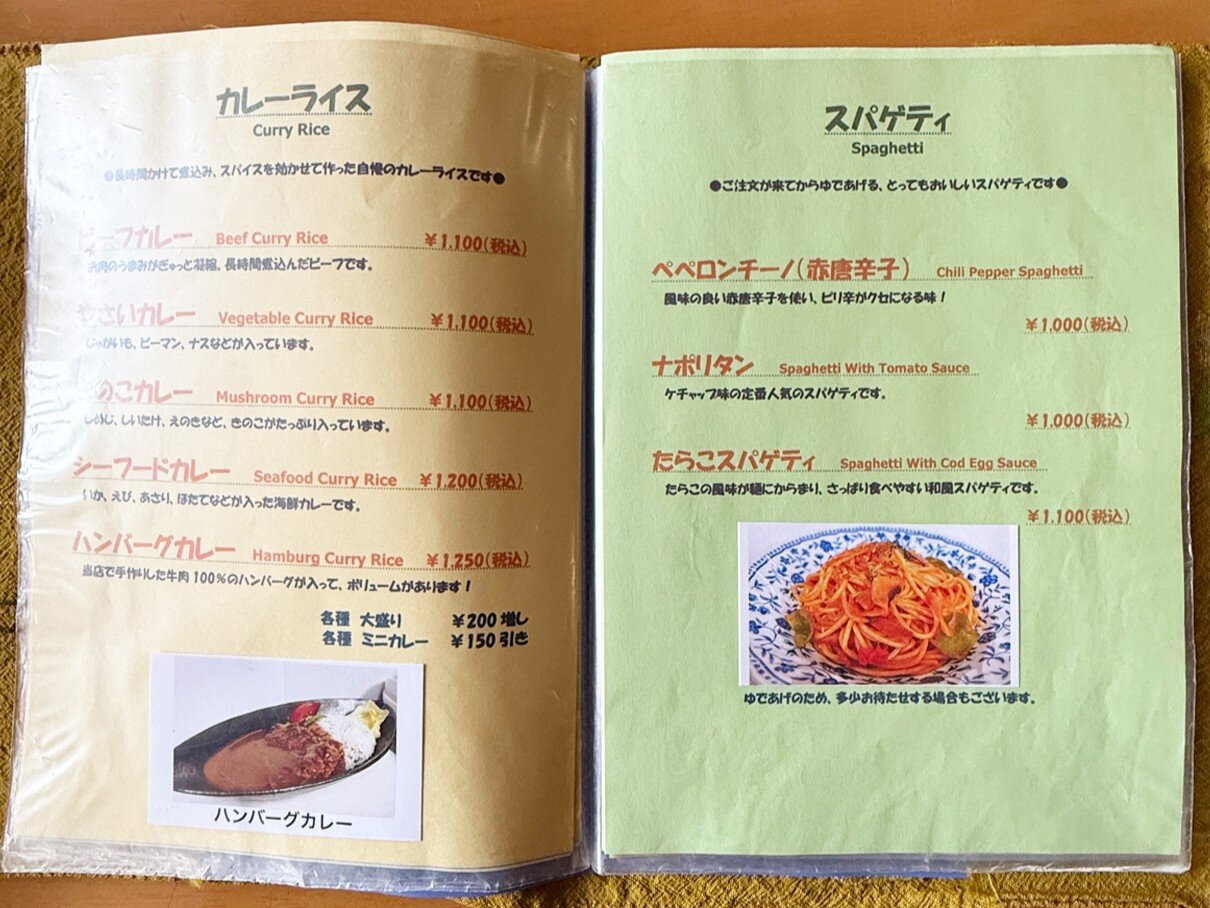 カレーライス
Curry Rice
●長時間かけて煮込み、スパイスを効かせて作った自慢のカレーライスです●
ビーフカレー Beef Curry Rice ¥1,100(税込)
お肉のうまみがぎゅっと凝縮。長時間煮込んだビーフです。
やさいカレー Vegetable Curry Rice ¥1,100(税込)
じゃがいも、ピーマン、ナスなどが入っています。
きのこカレー Mushroom Curry Rice ¥1,100(税込)
しめじ、しいたけ、えのきなど、きのこがたっぷり入っています。
シーフードカレー Seafood Curry Rice ¥1,200(税込)
いか、えび、あさり、ほたてなどが入った海鮮カレーです。
ハンバーグカレー Hamburg Curry Rice ¥1,250(税込)
当店で手作りした牛肉100%のハンバーグが入って、ボリュームがあります！
各種 大盛り ¥200増し
各種 ミニカレー ¥150引き
ハンバーグカレー
スパゲティ
Spaghetti
●ご注文が来てからゆであげる、とってもおいしいスパゲティです●
ペペロンチーノ(赤唐辛子) Chili Pepper Spaghetti
風味の良い赤唐辛子を使い、ピリ辛がクセになる味！
¥1,000(税込)
ナポリタン Spaghetti With Tomato Sauce
ケチャップ味の定番人気のスパゲティです。
¥1,000(税込)
たらこスパゲティ Spaghetti With Cod Egg Sauce
たらこの風味が麺にからまり、さっぱり食べやすい和風スパゲティです。
¥1,100(税込)
ゆであげのため、多少お待たせする場合もございます。